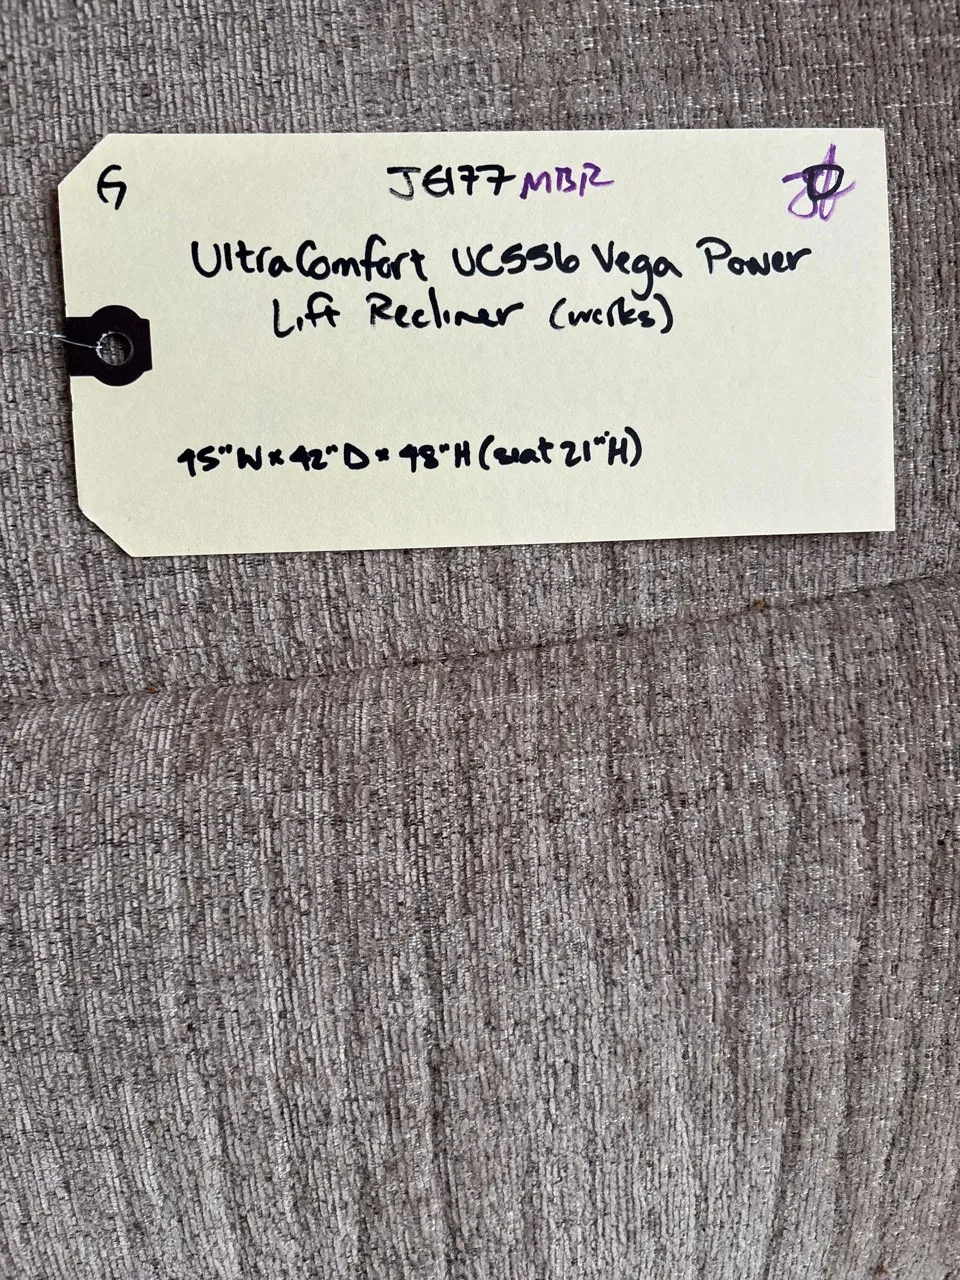 G JE177 MBR
UltraComfort UC556 Vega Power
Lift Recliner (works)
45"W x 42"D x 48"H (seat 21"H)